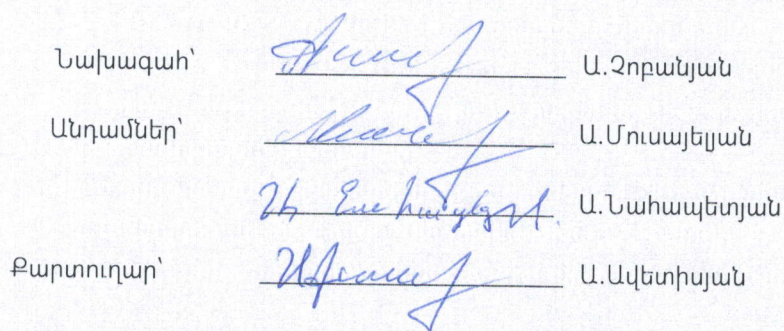 Նախագահ՝ Ա.Չոբանյան
Անդամներ՝ Ա.Մուսայելյան
Ա.Նահապետյան
Քարտուղար՝ Ա.Ավետիսյան